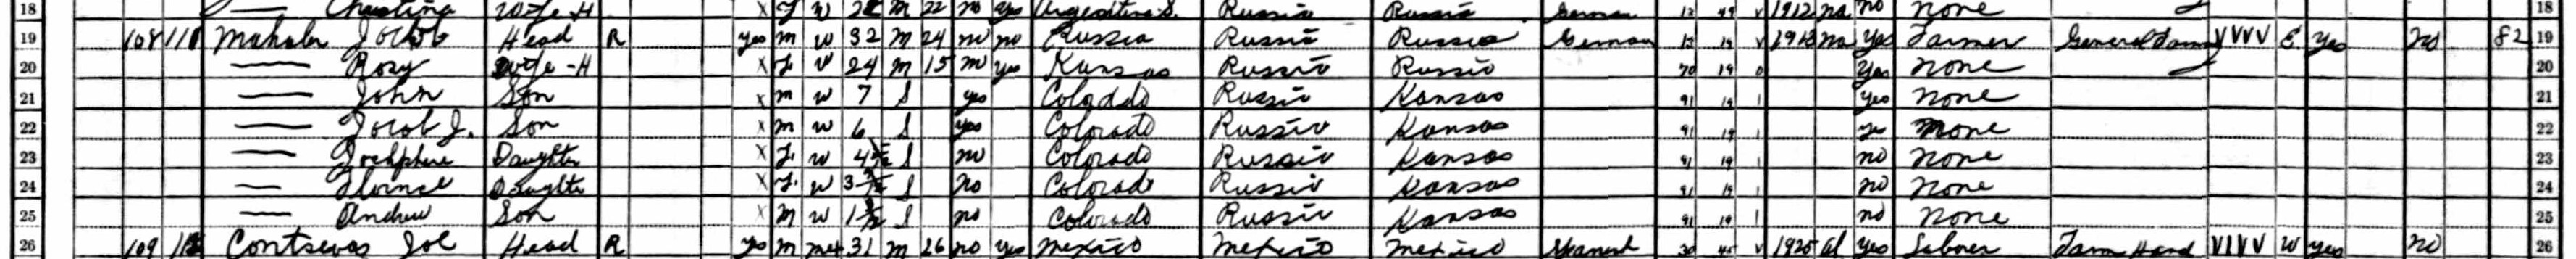 18 — Christina Wife-H X F W M 22 no yes Argentina S. Russia Russia German 12 49 V 1912 na no none 18
19 108 111 Jocob Head R yes m w 32 M 24 no no Russia Russia Russia German 12 19 V na yes Farmer General Farm VVVV E yes no 82 19
20 — Rosy Wife-H X F W 24 M 15 no yes Kansas Russia Russia 70 19 0 yes none 20
21 — John Son X m w 7 S yes Colorado Russia Kansas 91 19 1 yes none 21
22 — Jocob J. Son X m w 6 S yes Colorado Russia Kansas 91 19 1 yes none 22
23 — Daughter X F w 4 S no Colorado Russia Kansas 91 19 1 no none 23
24 — Daughter X F. W 3 S no Colorado Russia Kansas 91 19 1 no none 24
25 — Andrew Son X M W 1 S no Colorado Russia Kansas 91 19 1 no none 25
26 109 Joe Head R yes m mex 31 M 26 no yes Mexico Mexico Mexico Spanish 30 V 1920 al yes Laborer Farm Hand VVVV W yes no 26